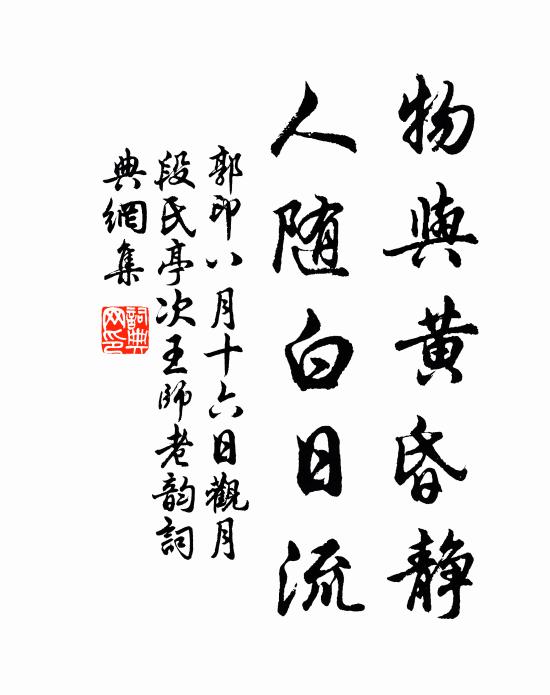 物與黄昏静
人随白日流
郭印八月十六日觀月
段氏亭次王師老韵詞
典網集
詞典
网印